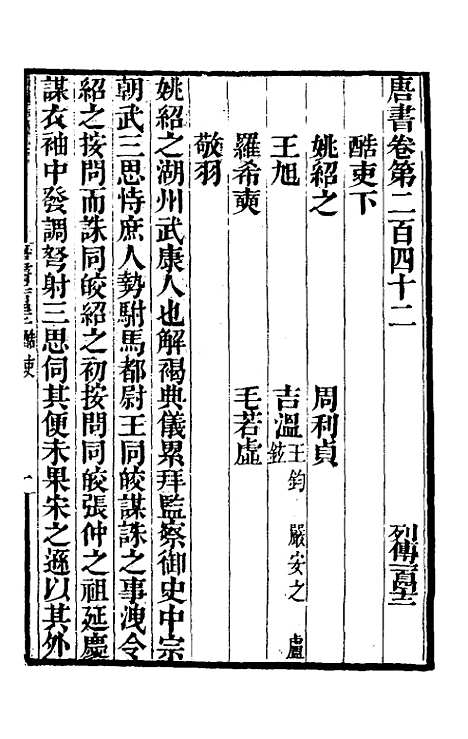 唐書卷第二百四十二 列傳一百四十二
酷吏下
姚紹之 周利貞
王旭 吉溫 王鈞 嚴安之 盧鉉
羅希奭 毛若虛
敬羽
姚紹之湖州武康人也解褐典儀累拜監察御史中宗
朝武三思恃庶人勢駙馬都尉王同皎謀誅之事洩令
紹之按問而誅同皎紹之初按問同皎張仲之祖延慶
謀衣袖中發調弩射三思伺其便未果宋之遜以其外